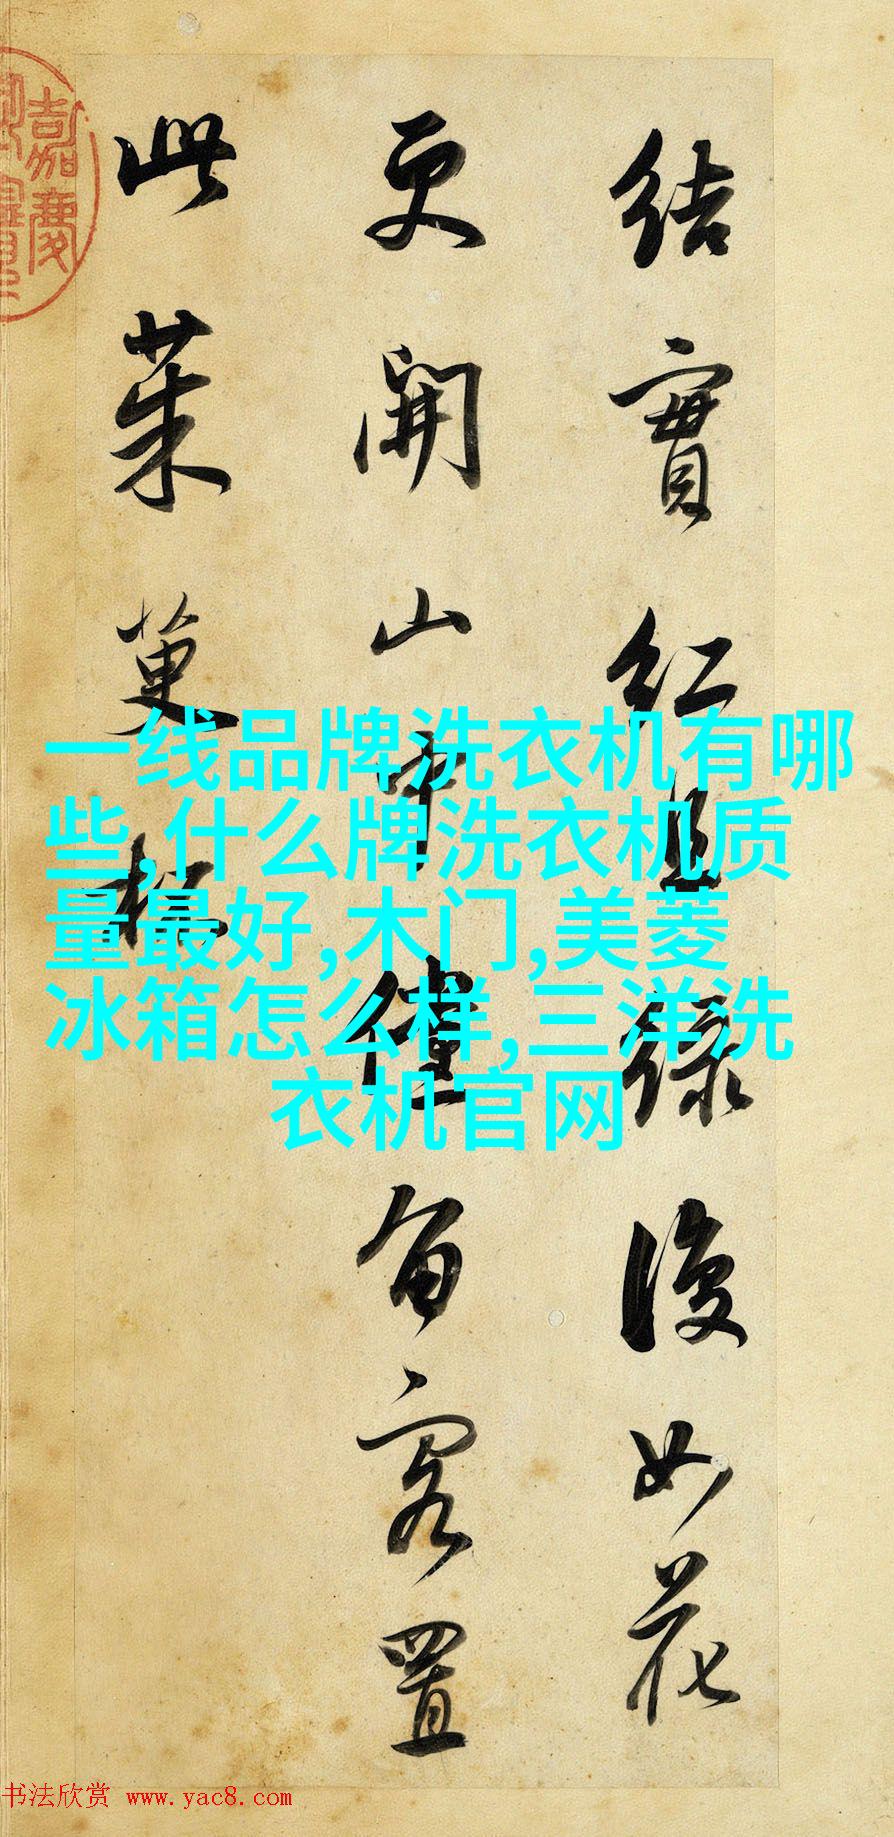 結實紅且綠復如花
更開山中儻留客置
此茱萸杯
嘉慶
一线品牌洗衣机有哪
些,什么牌洗衣机质
量最好,木门,美菱
冰箱怎么样,三洋洗
衣机官网
书法欣赏 www.yac8.com